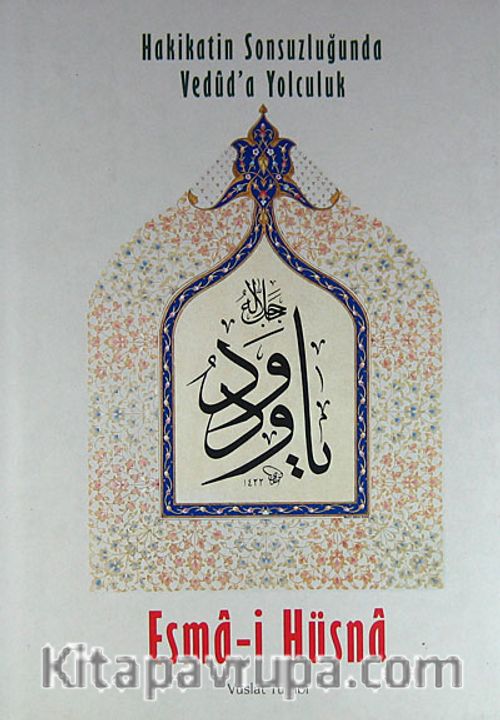 Hakikatin Sonsuzluğunda
Vedûd'a Yolculuk
جل جلاله
يا ودود
١٤٢٢
Esmâ-i Hüsnâ
Kitapavrupa.com
Vuslat